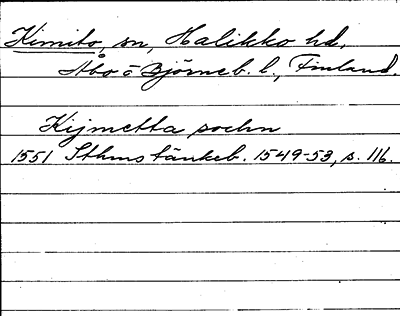 Kimito, sn, Halikko hd,
Åbo o Björneb. l., Finland.
Kijmetta sochn
1551 Sthms tänkeb. 1549-53, s. 116.